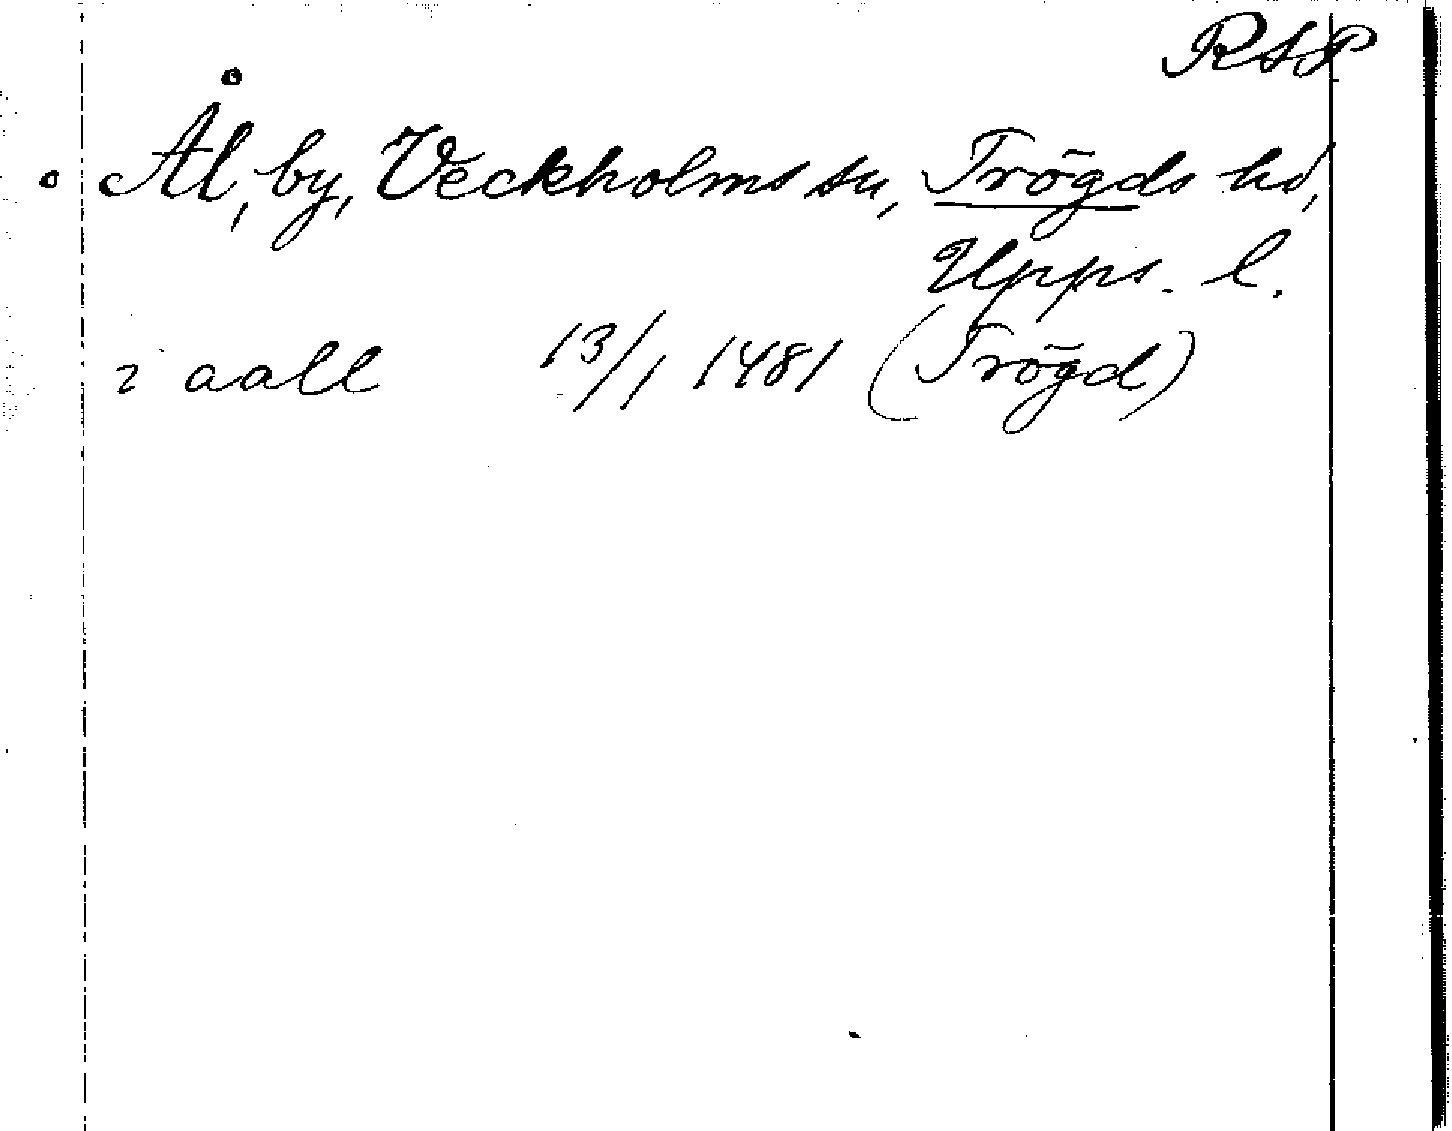 RAP
Ål, by, Veckholms sn, Trögds hd,
Upps. l.
i aall 13/1 1481 (Trögd)